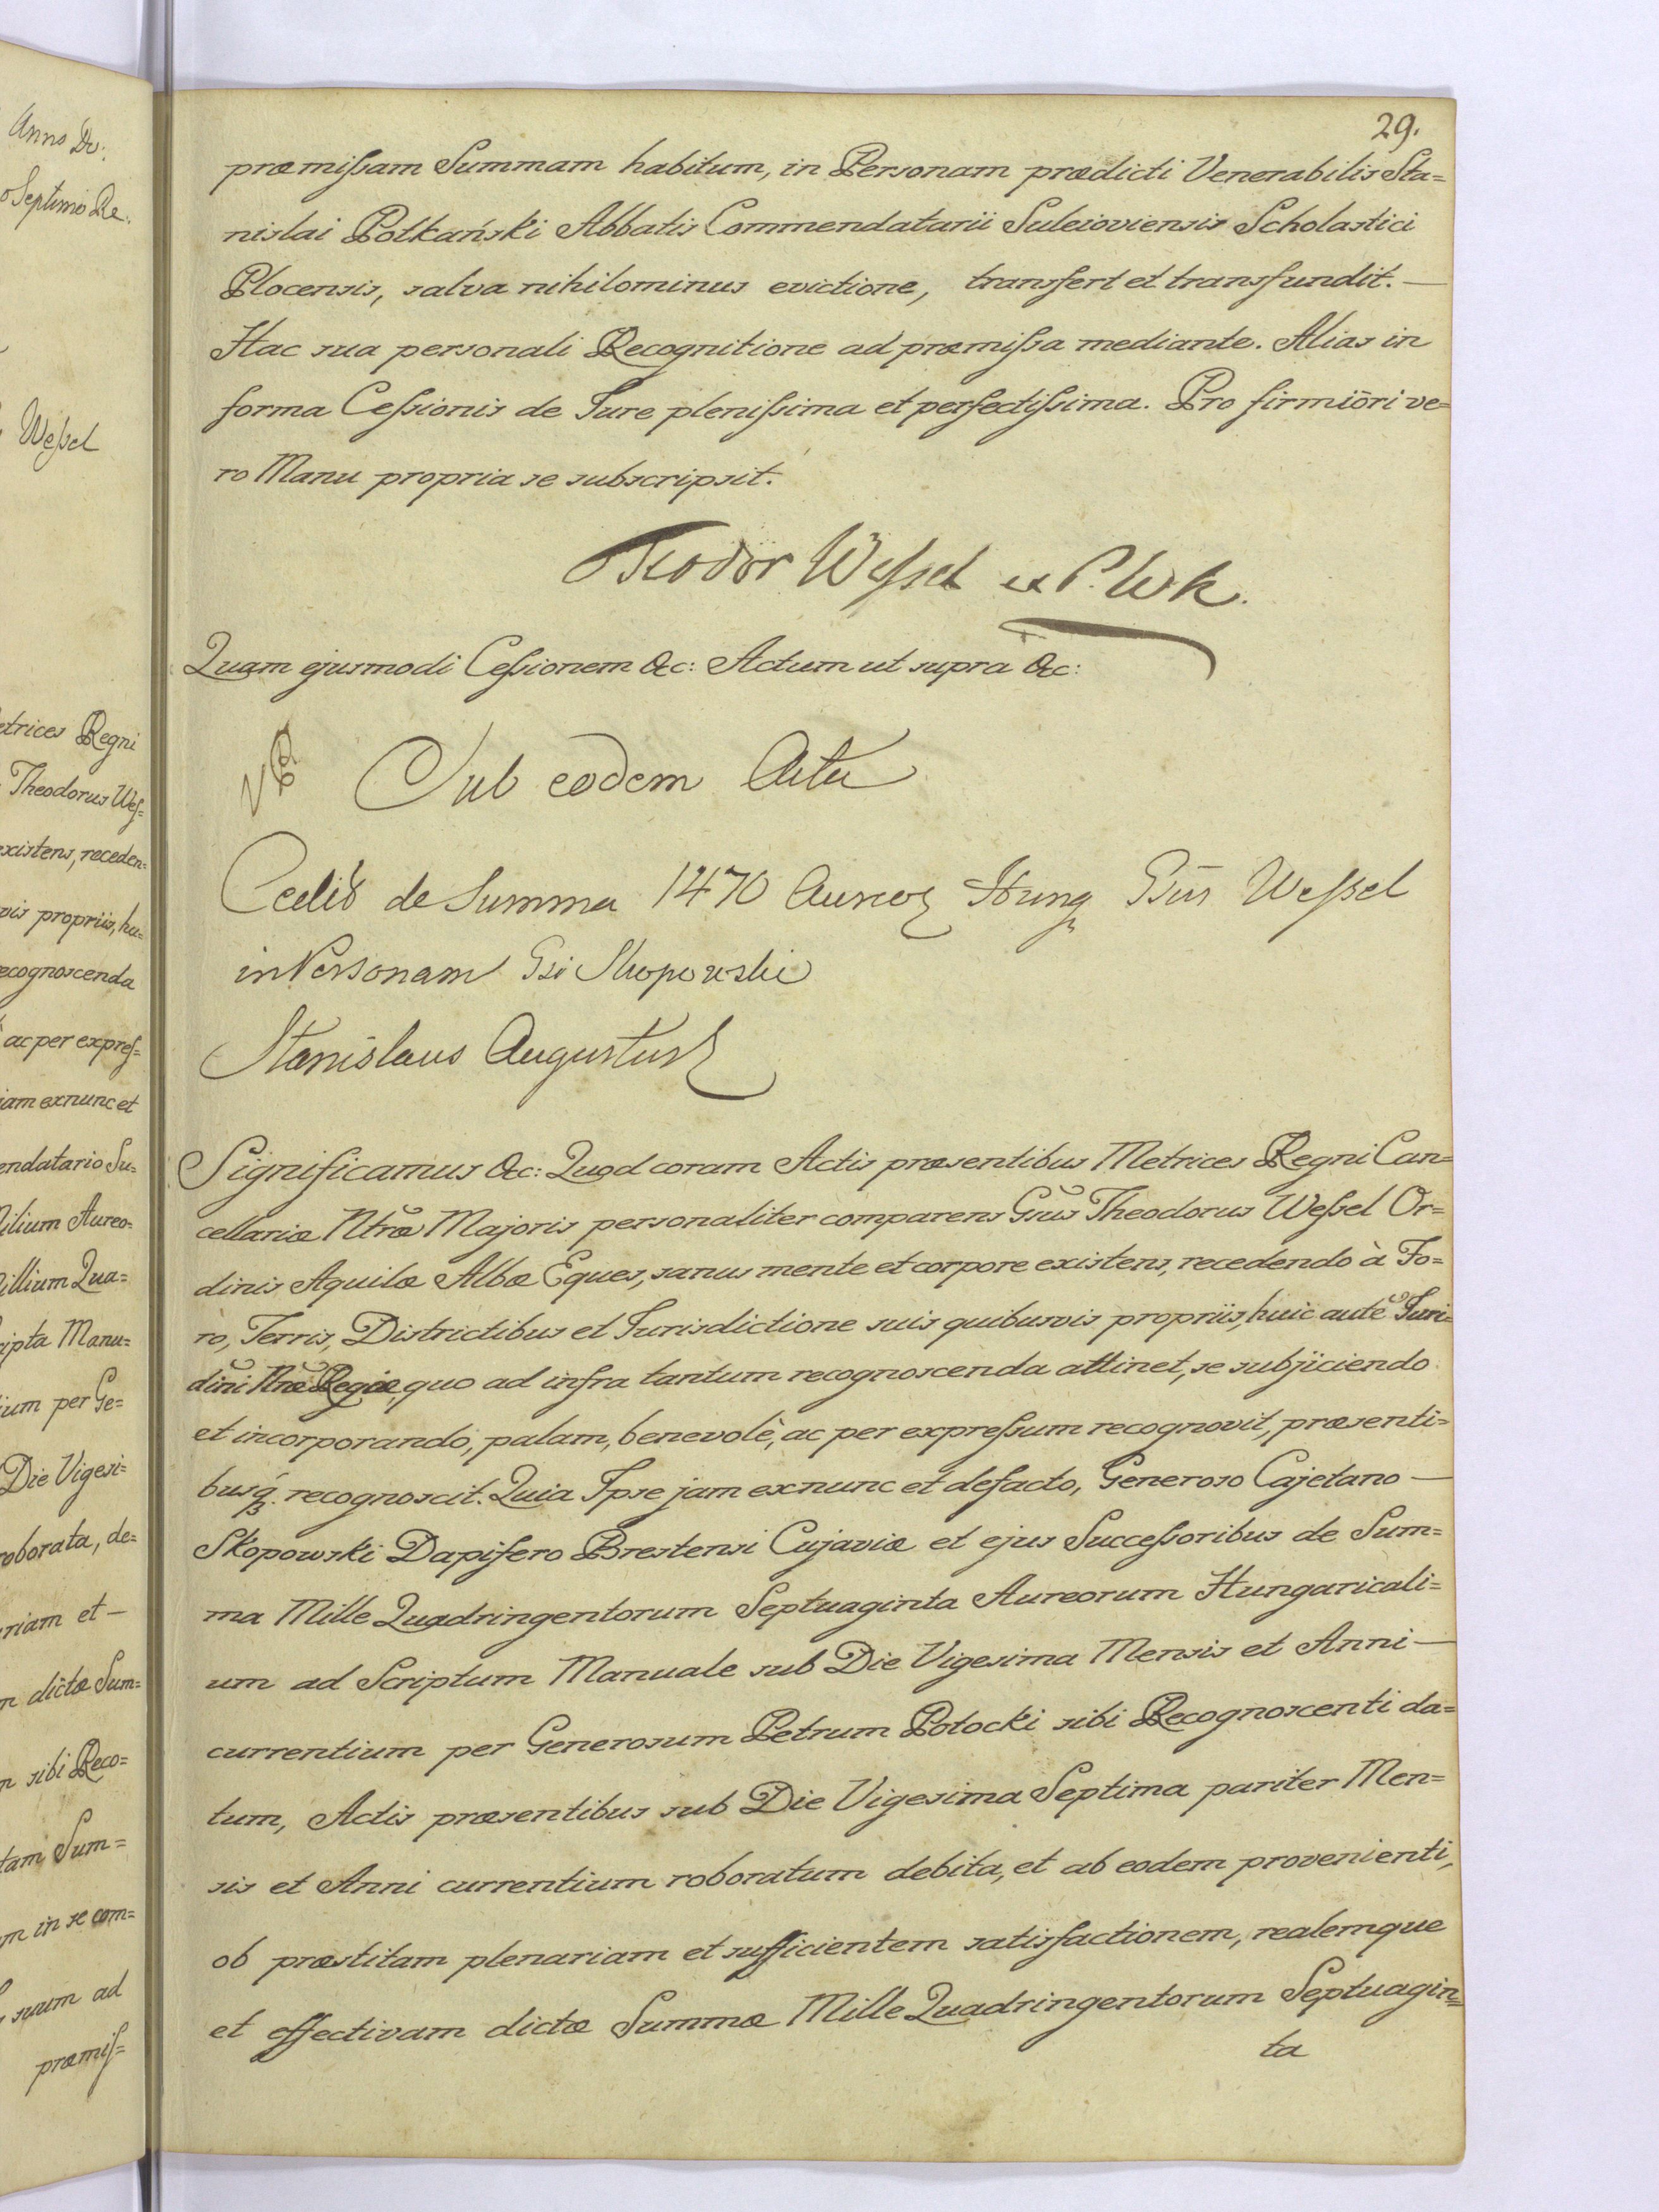 Anno Do:
o Septimo Re:
Weſsel
etrices Regni
Theodorus Weſ=
existens, receden=
vis propriis, hu=
ecognoscenda
ac per expreſ=
iam exnunc et
endatario Su=
ilium Aureo=
illium Qua=
ripta Manu=
ium per Ge=
Die Vigesi=
roborata, de=
riam et —
m dictæ Sum=
n sibi Reco=
tam Sum=
m in se com=
suum ad
præmiſ=
29.
præmiſsam Summam habitum, in Personam prædicti Venerabilis Sta=
nislai Potkański Abbatis Commendatarii Suleioviensis Scholastici
Plocensis, salva nihilominus evictione, transfert et transfundit. —
Hac sua personali Recognitione ad præmiſsa mediante. Alias in
forma Ceſsionis de Jure pleniſsima et perfectiſsima. Pro firmiōri ve=
ro Manu propria se subscripsit.
Teodor Weſsel
Quam ejusmodi Ceſsionem &c: Actum ut supra &c:
Sub eodem Actu
de Summa 1470 Aureoꝝ Hung Gsus Weſsel
in Personam Gsi Skopowski
Stanislaus Augustus
Significamus &c: Quod coram Actis præsentibus Metrices Regni Can=
cellariæ Ntræ Majoris personaliter comparens Gsus Theodorus Weſsel Or=
dinis Aquilæ Albæ Eques, sanus mente et corpore existens, recedendo à Fo=
ro, Terris, Districtibus et Jurisdictione suis quibusvis propriis, huic autē Juri=
dini Ntræ Regiæ, quo ad infra tantum recognoscenda attinet, se subjiciendo
et incorporando, palam, benevolè, ac per expreſsum recognovit, præsenti=
busq́ꝫ. recognoscit. Quia Ipse jam exnunc et defacto, Generoso Cajetano —
Skopowski Dapifero Brestensi Cujaviæ et ejus Succeſsoribus de Sum=
ma Mille Quadringentorum Septuaginta Aureorum Hungaricali=
um ad Scriptum Manuale sub Die Vigesima Mensis et Anni —
currentium per Generosum Petrum Potocki sibi Recognoscenti da=
tum, Actis præsentibus sub Die Vigesima Septima pariter Men=
sis et Anni currentium roboratum debita, et ab eodem provenienti,
ob præstitam plenariam et sufficientem satisfactionem, realemque
et effectivam dictæ Summæ Mille Quadringentorum Septuagin=
ta